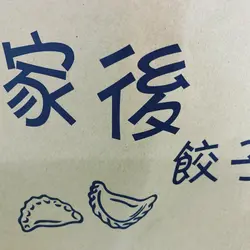 家後
餃子